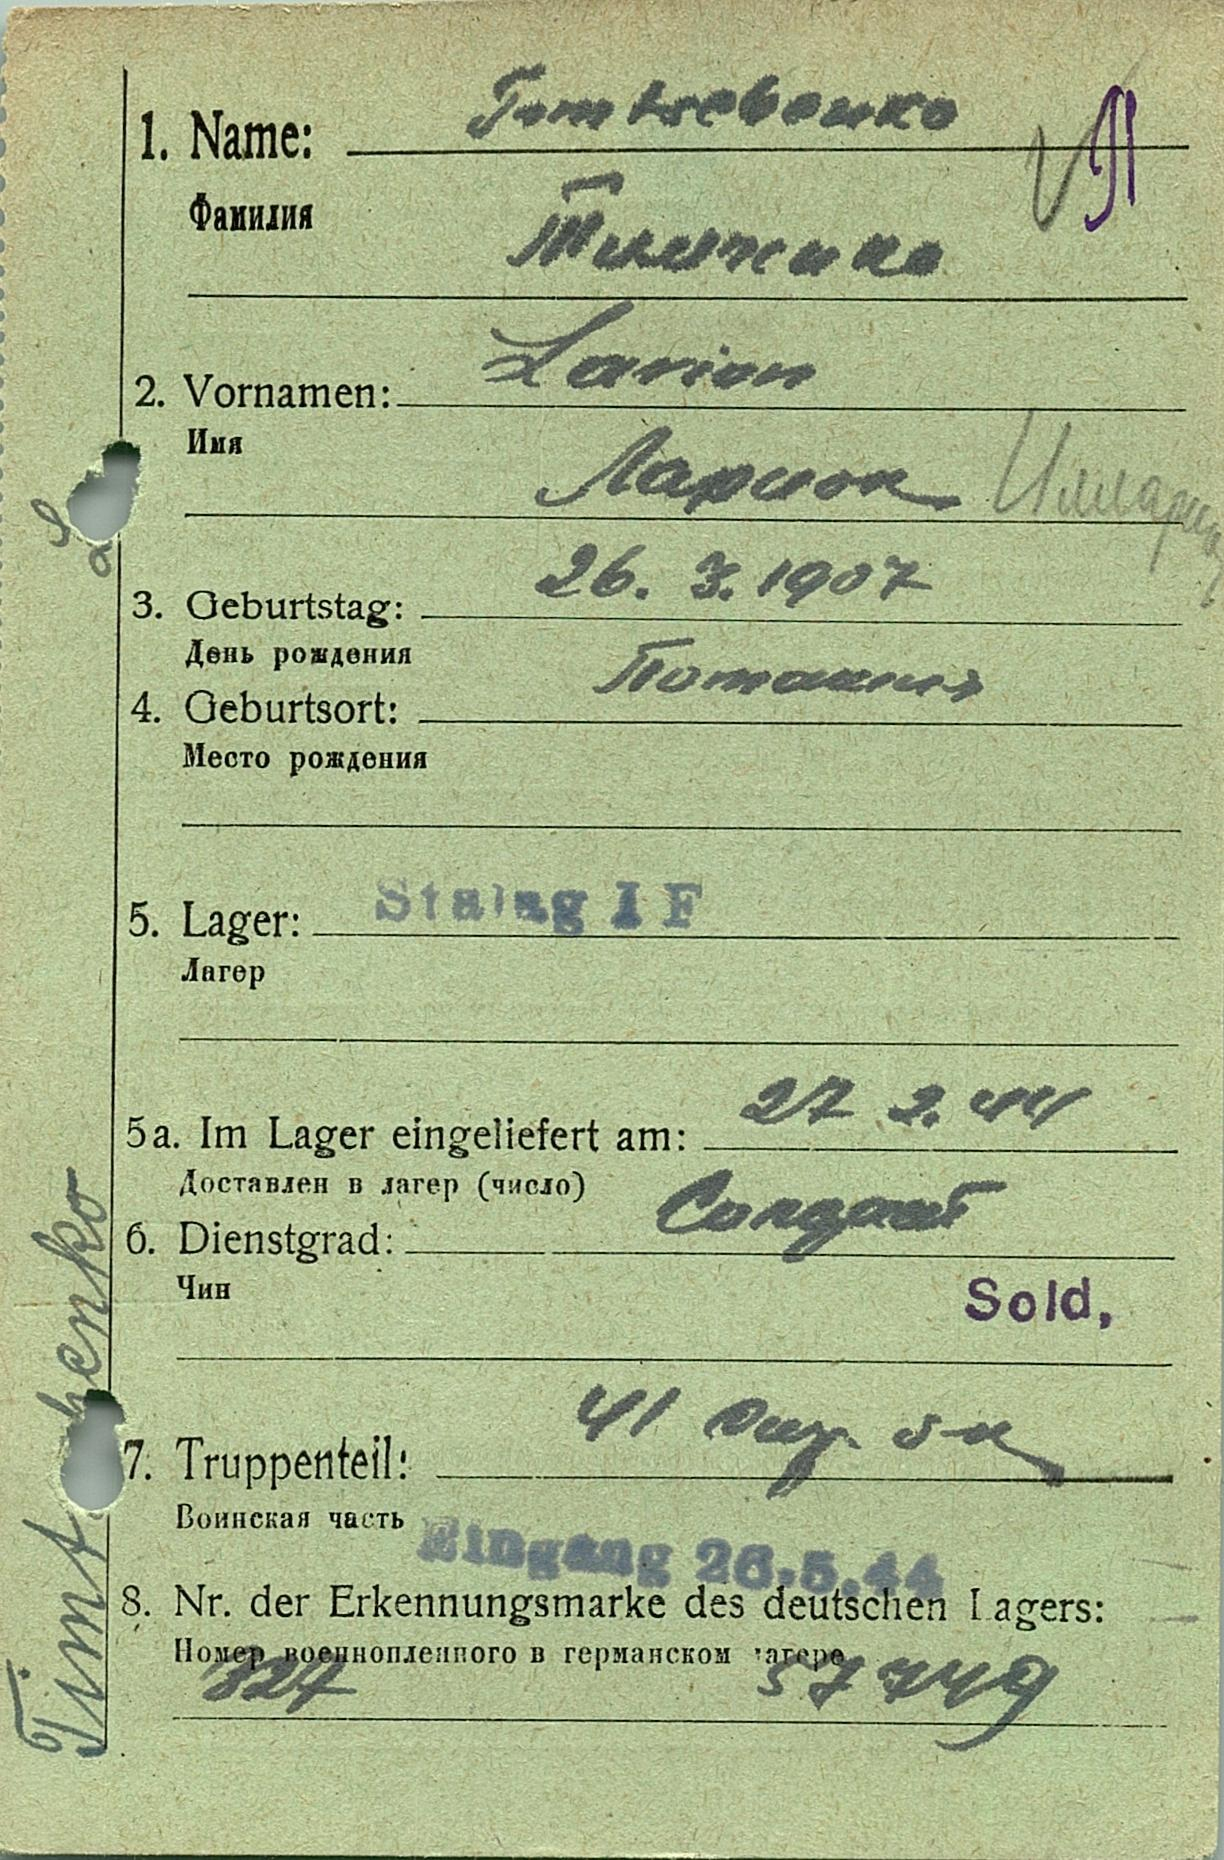 1. Name:
Фамилия
2. Vornamen: Larion
Имя
Ларион Иллари
3. Geburtstag: 26. 3. 1907
День рождения
4. Geburtsort:
Место рождения
5. Lager: Stalag I F
Лагер
5a. Im Lager eingeliefert am: 27 2. 44
Доставлен в лагер (число)
6. Dienstgrad: Солдат
Чин
Sold,
7. Truppenteil: 41
Воинская часть
Eingang 26.5.44
8. Nr. der Erkennungsmarke des deutschen Lagers:
Номер военнопленного в германском лагере
327 57749